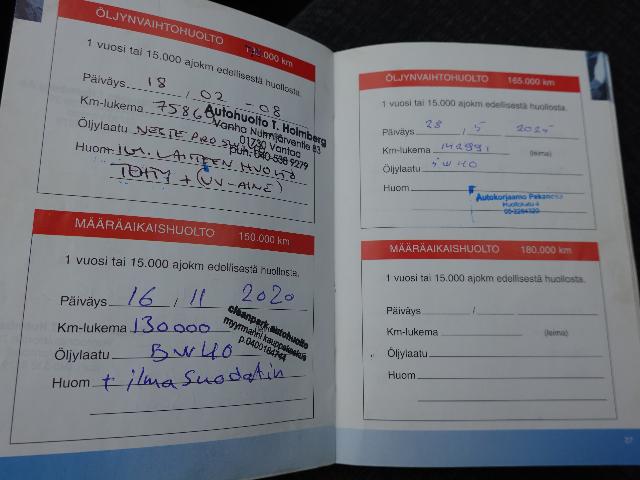 ÖLJYNVAIHTOHUOLTO 135.000 km
1 vuosi tai 15.000 ajokm edellisestä huollosta.
Päiväys 18 / 02 - 08
Km-lukema 75860
Öljylaatu NESTE PRO
Huom + ILM. LAITTEEN HUOLTO
TEHTY + (UV-AINE)
Autohuolto T. Holmberg
Vanha Nurmijärventie 83
01730 Vantaa
puh. 040-538 9279
MÄÄRÄAIKAISHUOLTO 150.000 km
1 vuosi tai 15.000 ajokm edellisestä huollosta.
Päiväys 16 / 11 2020
Km-lukema 130000
Öljylaatu 5W40
Huom + ilmasuodatin
cleanpark autohuolto
myyrmanni kauppakeskus
p.0400184744
ÖLJYNVAIHTOHUOLTO 165.000 km
1 vuosi tai 15.000 ajokm edellisestä huollosta.
Päiväys 28 / 5 2025
Km-lukema 142991 (leima)
Öljylaatu 5W40
Huom
Autokorjaamo
Huoltokatu 4
05-2284320
MÄÄRÄAIKAISHUOLTO 180.000 km
1 vuosi tai 15.000 ajokm edellisestä huollosta.
Päiväys /
Km-lukema (leima)
Öljylaatu
Huom
27